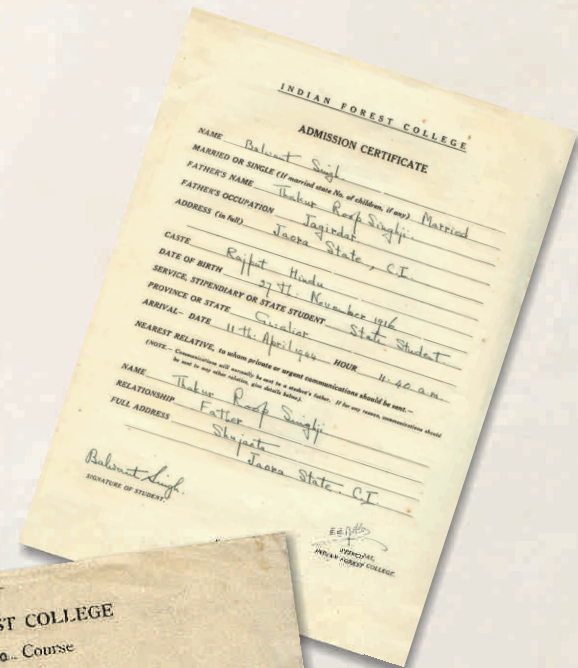 INDIAN FOREST COLLEGE
ADMISSION CERTIFICATE
NAME Balwant Singh
MARRIED OR SINGLE (If married state No. of children, if any) Married
FATHER'S NAME Thakur Roop Singhji.
FATHER'S OCCUPATION Jagirdar
ADDRESS (in full) Jaora State, C.I.
CASTE Rajput Hindu
DATE OF BIRTH 27th. November 1916
SERVICE, STIPENDIARY OR STATE STUDENT State Student
PROVINCE OR STATE Gwalior
ARRIVAL- DATE 11th. April 1944 HOUR 11.40 a.m.
NEAREST RELATIVE, to whom private or urgent communications should be sent.—
(NOTE.— Communications will normally be sent to a student's father. If for any reason, communications should
be sent to any other relation, give details below).
NAME Thakur Roop Singhji
RELATIONSHIP Father
FULL ADDRESS Shujaota
Jaora State. C.I.
Balwant Singh.
SIGNATURE OF STUDENT.
PRINCIPAL,
INDIAN FOREST COLLEGE.
ST COLLEGE
Course